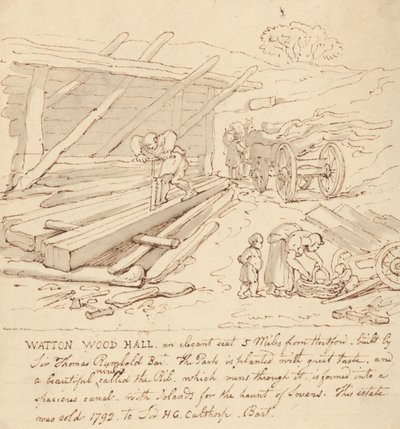 WATTON WOOD HALL. an elegant seat 5 Miles from Hertford. built by
Sir Thomas Rumbold Bar. The Park is planted with great taste, and
a beautiful river called the Rib, which runs through it is formed into a
spacious canal. with Islands for the haunt of Swans. This estate
was sold 1792. to Sir H.G. Calthorp. Bart.